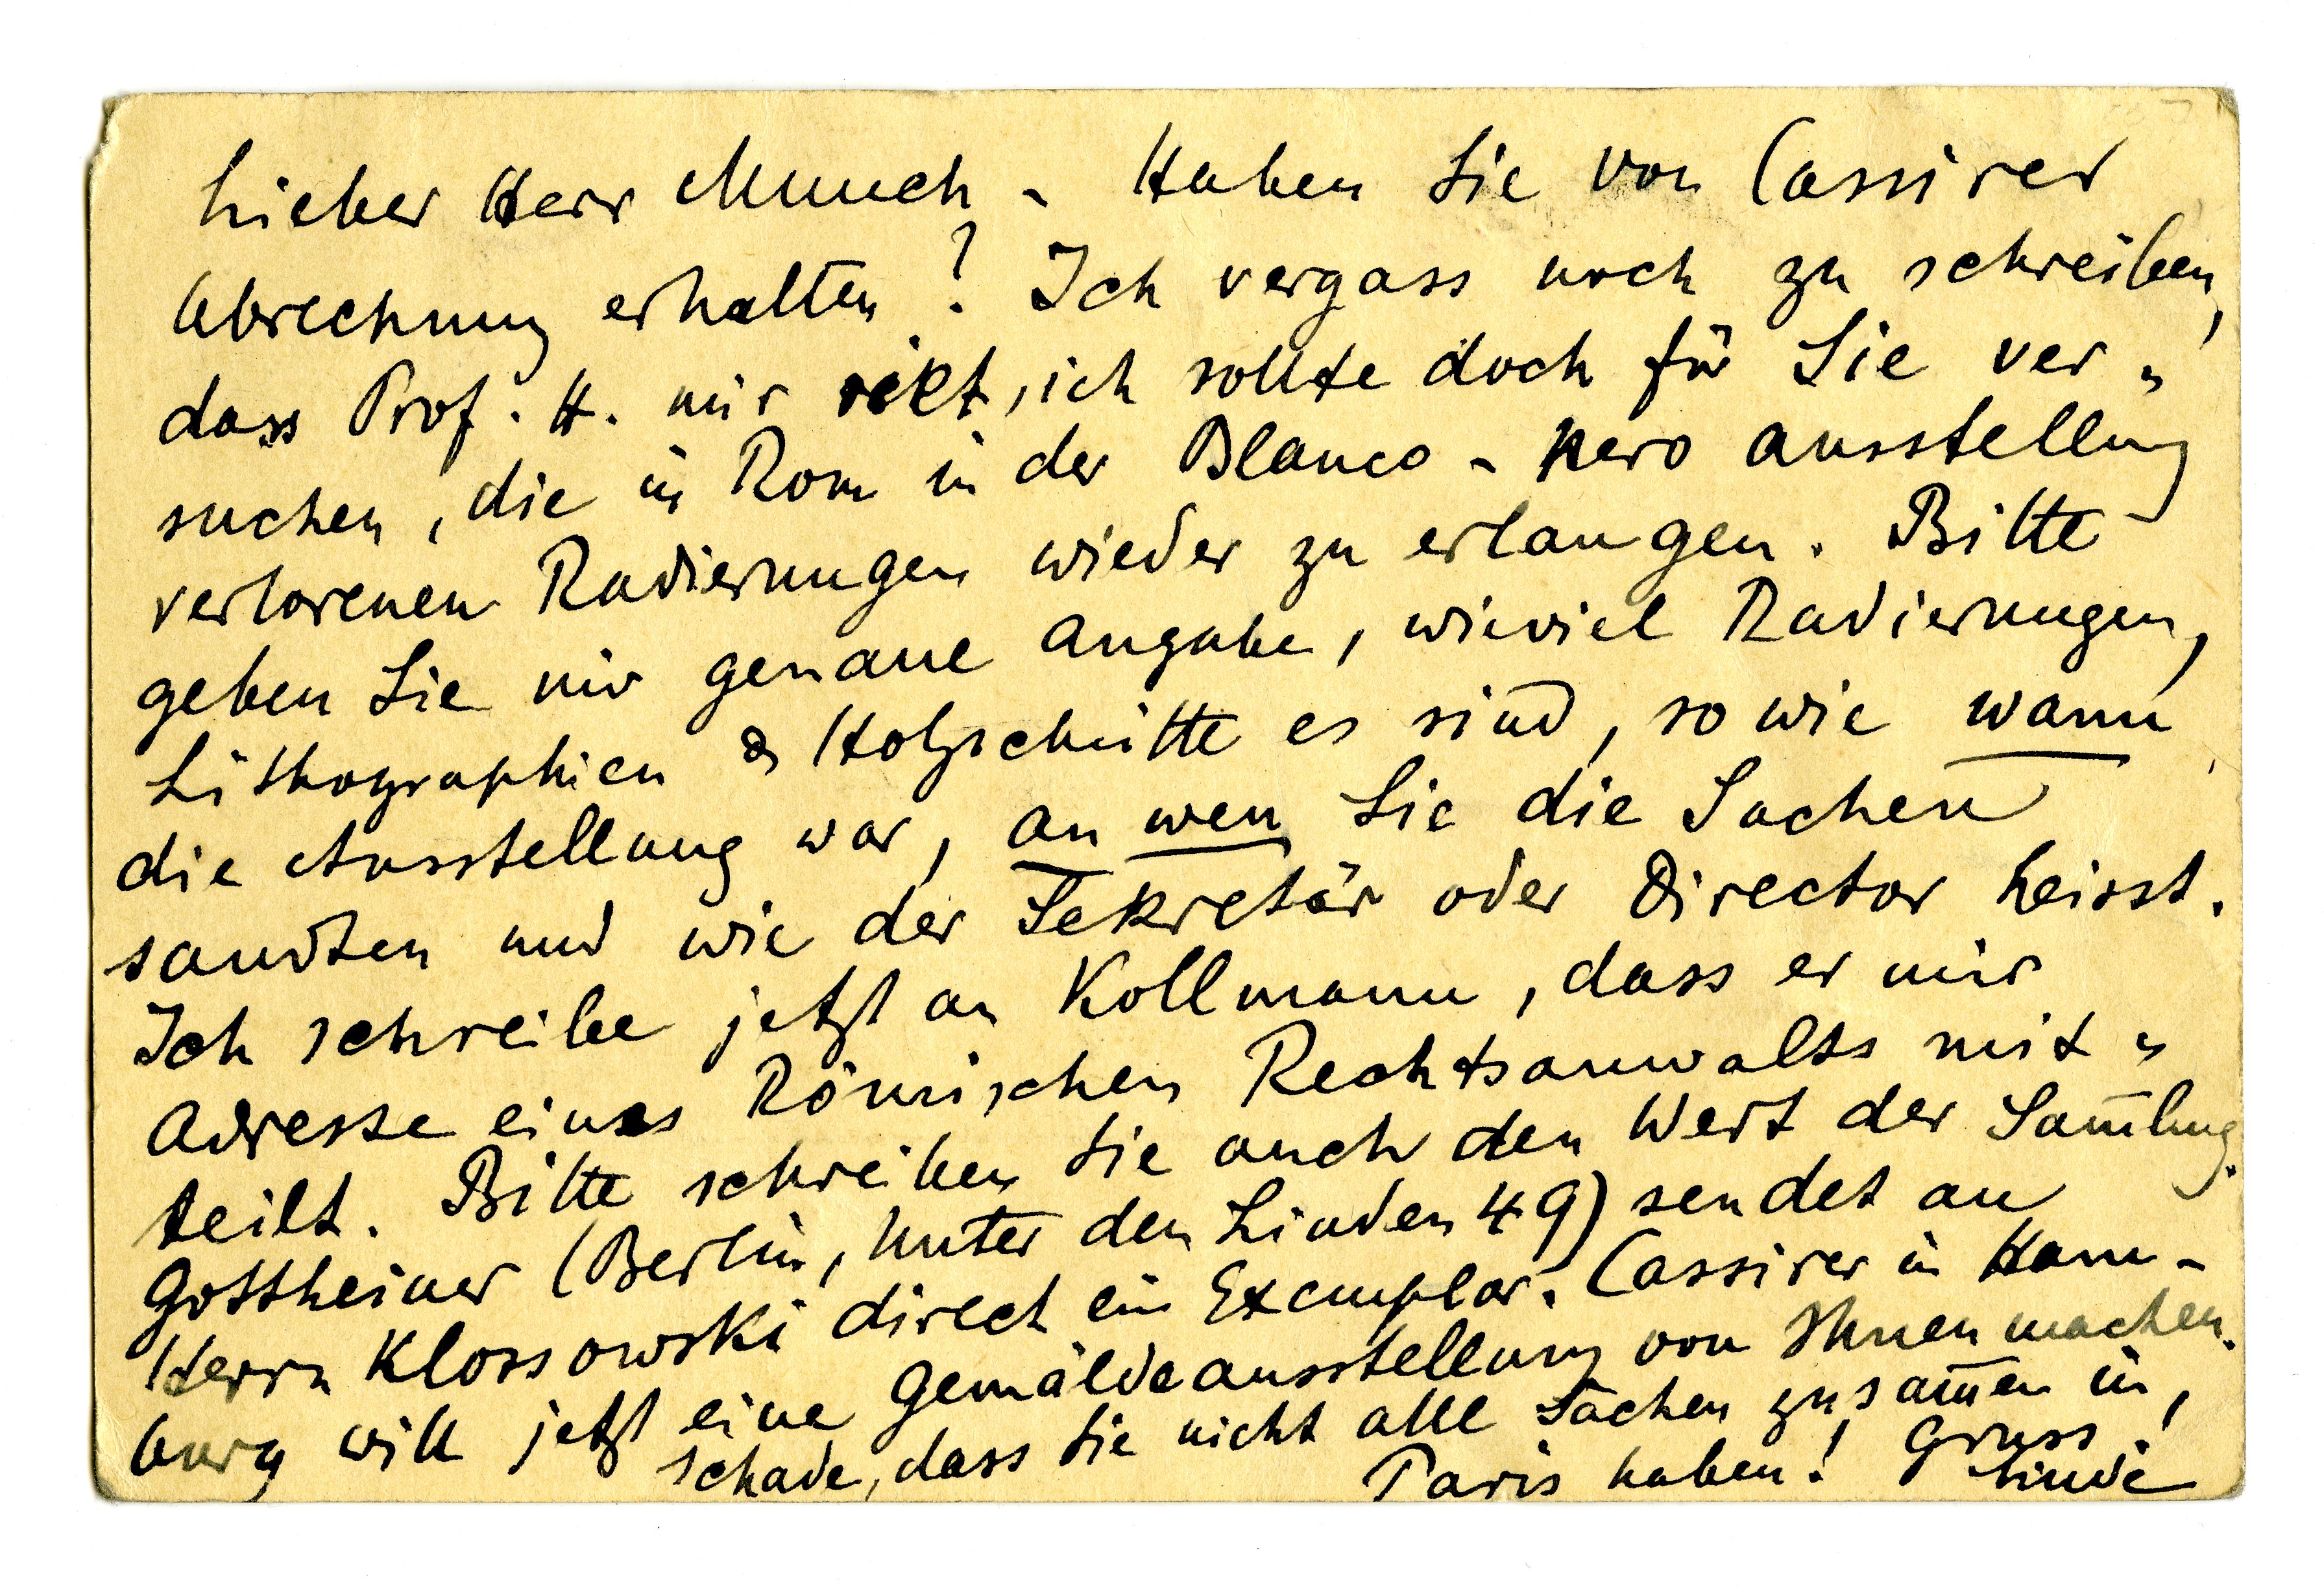 Lieber Herr Munch – Haben Sie von Cassirer
Abrechnung erhalten? Ich vergass noch zu schreiben,
dass Prof. H. mir riet, ich sollte doch für Sie ver-
suchen, die in Rom in der Blanco-Nero Ausstellung
verlorenen Radierungen wieder zu erlangen. Bitte
geben Sie mir genaue Angabe, wieviel Radierungen,
Lithographien & Holzschnitte es sind, so wie wann
die Ausstellung war, an wen Sie die Sachen
sandten und wie der Sekretär oder Director heisst.
Ich schreibe jetzt an Kollmann, dass er mir
Adresse eines Römischen Rechtsanwalts mit-
teilt. Bitte schreiben Sie auch den Wert der Sam̅lung.
Gottheiner (Berlin, Unter den Linden 49) sendet an
Herrn Klossowski direct ein Exemplar. Cassirer in Ham-
burg will jetzt eine Gemäldeausstellung von Ihnen machen.
Schade, dass Sie nicht alle Sachen zusam̅en in
Paris haben! Gruss!
Linde